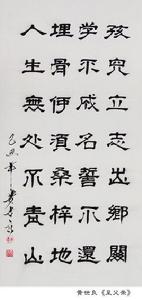 孩兒立志出鄉關
學不成名誓不還
埋骨何須桑梓地
人生無处不青山
黄世良《呈父亲》